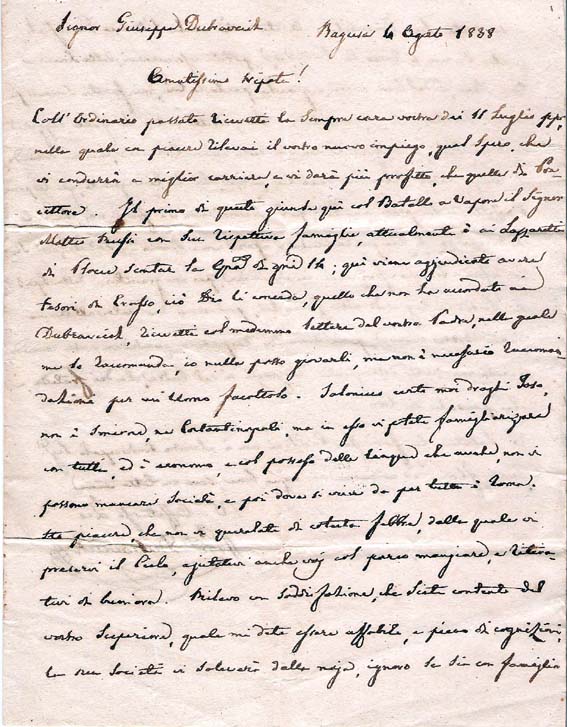 Signor Giuseppe Dubravcich Ragusa 4 Agosto 1838
Amatissimo Nipote!
Coll' Ordinario passato ricevetti la sempre cara vostra dei 11 Luglio ppo
nella quale con piacere rilevai il vostro nuovo impiego, qual spero, che
vi condurrà a miglior carriera, e vi darà più profitto, che quello di
Il primo di questo giunse quì col Batello a Vapore il Signor
Matteo con sua rispettiva famiglia, attualmente è ai Lazzaretti
di Ploce scontar la di 14; quì viene aggiudicato avere
tesori di ciò Dio li conceda, quello che non ha accordato ai
Dubravcich, ricevetti col medesimo lettera del vostro Padre, nella quale
me lo raccomanda, io nulla posso giovarli, ma non è necessario raccoman
dazione per un Uomo facoltoso. Salonicco certo
non è Smirne, ne Costantinopoli, ma in esso vi potete famigliarizare
con tutti, ed è economo, e col possesso delle lingue che avete, non vi
possono mancare società, e poi dove si vive da per tutto è Roma.
Ho piacere, che non vi querelate di cotesta febbre, dalla quale vi
preservi il Cielo, ajutatevi anche voj col parco mangiare, e ritira
tevi di buonora. Rilevo con soddisfazione, che siete contento del
vostro Superiore, quale mi dite essere affabile, e pieno di cognizioni,
la sua società vi solleverà dalla noja, ignoro se sia con famiglia